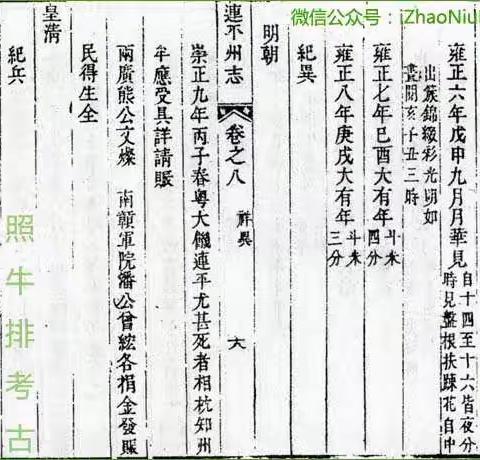 微信公众号：iZhaoNiu
雍正六年戊申九月月華見自十四至十六皆夜分
時見盤根扶踈花自中
出簇錦綴彩光明如
晝閱亥子丑三時
雍正七年巳酉大有年斗米
四分
雍正八年庚戌大有年斗米
三分
紀異
明朝
連平州志 卷之八 祥異 六
崇正九年丙子春粤大饑連平尤甚死者相枕知州
牟應受具詳請賑
兩廣熊公文燦 南贛軍院潘公曾紘各捐金發賑
民得生全
皇清
紀兵
照牛排考古